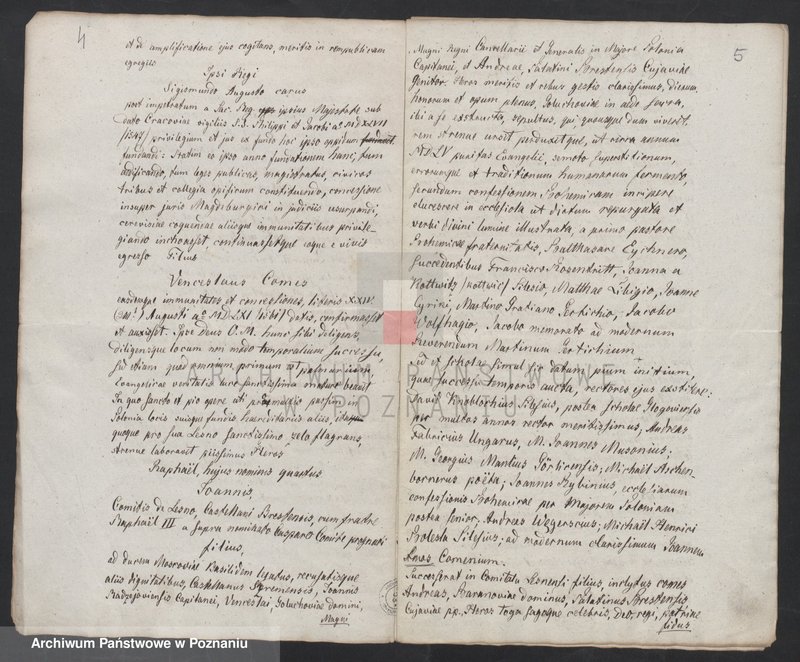 4
et de amplificatione ejus cogitans, meritis in rempublicam
egregiis
Ipsi Regi
Sigismundo Augusto carus
post impetratum a Sac. Reg. ipsius Majestate sub
dato Cracoviae vigiliis S.S. Philippi et Jacobi aº MDXLVII
/1547/ privilegium et jus ex fundo hoc ipso oppidum
fundandi: Statim eo ipso anno fundationem hanc, tum
aedificando, tum leges publicas, magistratus, civicos
tribus et collegia opificum constituendo, concessione
insuper juris Magdeburgici in judiciis usurpandi,
cerevisiae coquendae aliisque immunitatibus privile-
giando inchoasset, continuassetque usque e vivis
egresso Filius
Venceslaus Comes
easdemque immunitates et concessiones, literis XXIV
Augusti aº MDLXI /1561/ datis, confirmasset
et auxisset. Ipse Deus O.M. hunc sibi deligens,
diligensque locum non modo temporalium successu,
sed etiam quod omnium primum et palmarium,
Evangelicae veritatis luce sanctissima mature beavit
In quo sancto et pio opere uti passim in
Polonia locis suisque fundis haereditariis aliis, ita
quoque pro sua Lesno sanctissimo zelo flagrans,
strenue laboravit piissimus Heros
Raphaël hujus nominis quartus
Joannis,
Comitis de Lesno, Castellani Brestensis, cum fratre
Raphaël III a supra nominato Casparo Comite prognati
filius,
ad ducem Moscoviae Basilidem legatus, recusatisque
aliis dignitatibus, Castellanus Sremensis, Joannis
Radziejoviensis Capitanei, Vencestai Goluchoviae domini,
Magni
5
Magni Regni Cancellarii et Generalis in Majore Polonia
Capitanei, et Andreae, Palatini Brestensis Cujaviae
Genitor. Heros meritis et rebus gestis clarissimus, dierum
honorum et opum plenus, Goluchoviae in aede sacra,
ibi a se exstructa, sepultus, qui quousque dum viveret
rem strenue ursit perduxitque, ut circa annum
MDLV puritas Evangelii, semoto superstitionum,
errorumque et traditionum humanarum fermento,
secundum confessionem Bohemicam inciperet
elucescere in ecclesiola ut dictum repurgata et
verbi divini lumine illustrata, a primo pastore
Bohemicae fraternitatis, Balthasare Eychnero,
succedentibus Francisco Rosendritt, Joanna a
Kottwitz /Kottwic/ Silesio, Matthae Libigio, Joanne
Cyrini, Martino Gratiano Gertichio, Jacobo
Wolfhagio, Jacobo memorato ad modernum
Reverendum Martinum Gertichium
Sed et scholae simul datum pium initium,
quae successu temporis aucta, rectores ejus exstitere:
David Knoblochius Silesius, postea scholae Glogoviensis
per multos annos rector meritissimus, Andreas
Fabricius Ungarus, M. Joannes Musonius;
M. Georgius Manlius Görlicensis; Michaël Aschen-
bornerus poëta; Joannes Rybinius ecclesiarum
confessionis Bohemicae per Majorem Poloniam
postea Senior, Andreas Wegerscius; Michaël Henrici
Protesta Silesius; ad modernum clarissimum Joannem
Amos Comenium.
Successerat in Comitatu Lesnensi filius, inclytus comes
Andreas, Baranoviae dominus, Palatinus Brestensis
Cujaviae pp. Heros toga sagoque celebris, Deo, regi, patriae
fidus
ARCHIWUM PAŃSTWOWE
W POZNANIU
Archiwum Państwowe w Poznaniu